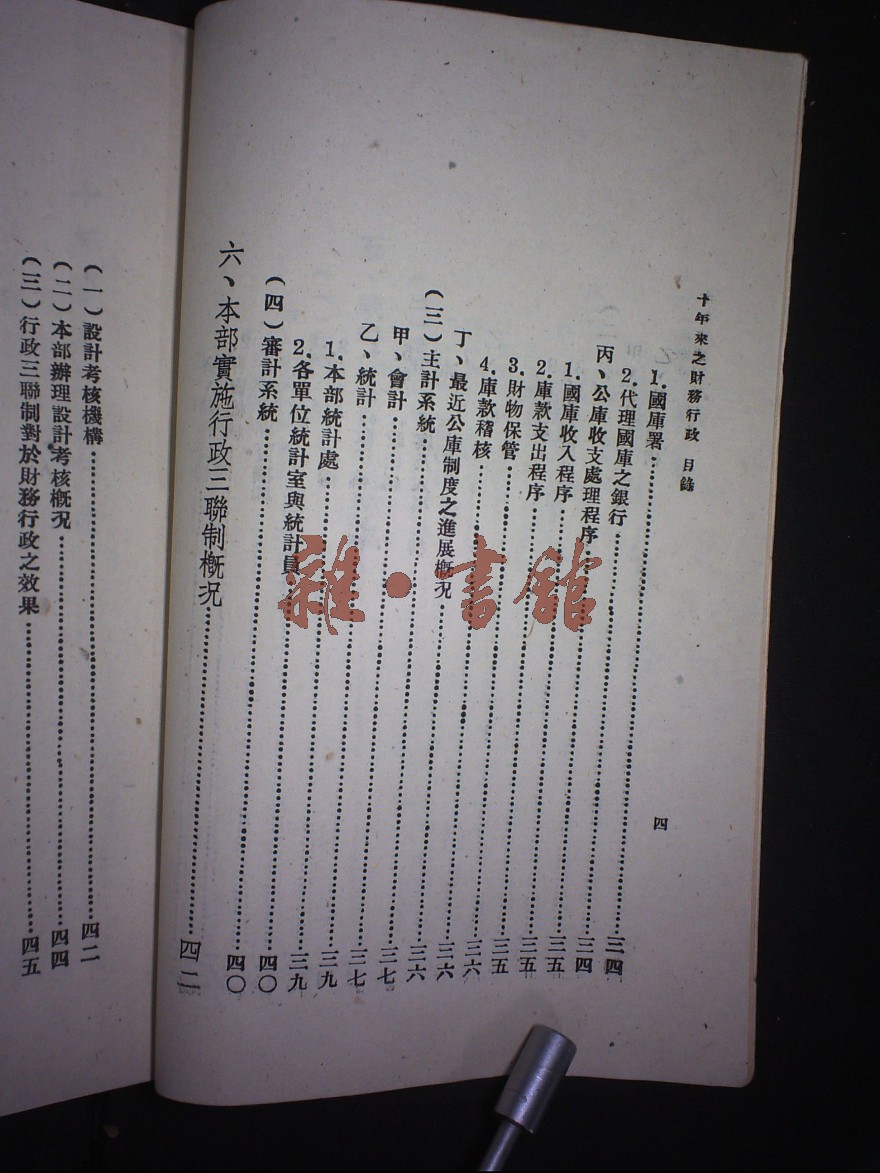 十年來之財務行政 目錄
四
1.國庫署……三四
2.代理國庫之銀行……三四
丙、公庫收支處理程序……三五
1.國庫收入程序……三五
2.庫款支出程序……三五
3.財物保管……三六
4.庫款稽核……三六
丁、最近公庫制度之進展概況……三六
（三）主計系統……三七
甲、會計……三七
乙、統計……三九
1.本部統計處……三九
2.各單位統計室與統計員……四〇
（四）審計系統……四〇
六、本部實施行政三聯制概況……四二
（一）設計考核機構……四二
（二）本部辦理設計考核概況……四四
（三）行政三聯制對於財務行政之效果……四五
雜·書館